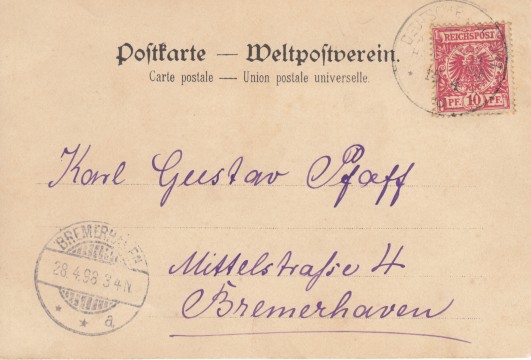 Postkarte — Weltpostverein.
Carte postale — Union postale universelle.
REICHSPOST
PF. 10 PF.
Karl Gustav Pfaff
BREMERHAVEN
28.4.98 3-4N.
* * a
Mittelstraße 4
Bremerhaven